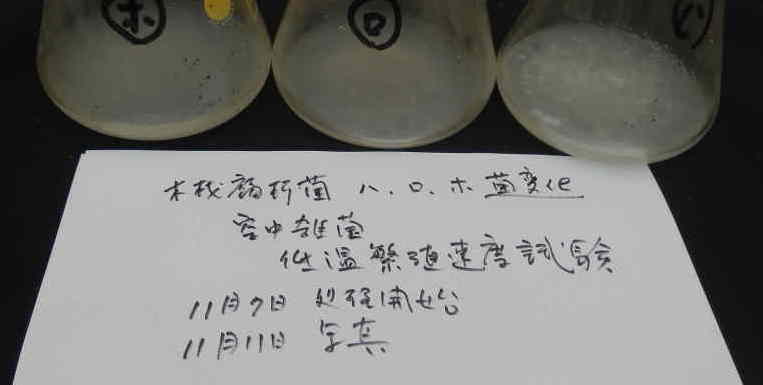 ホ ロ ハ
木材腐朽菌 ハ、ロ、ホ 菌変化
空中雑菌
低温繁殖速度試験
11月7日 処理開始
11月11日 写真